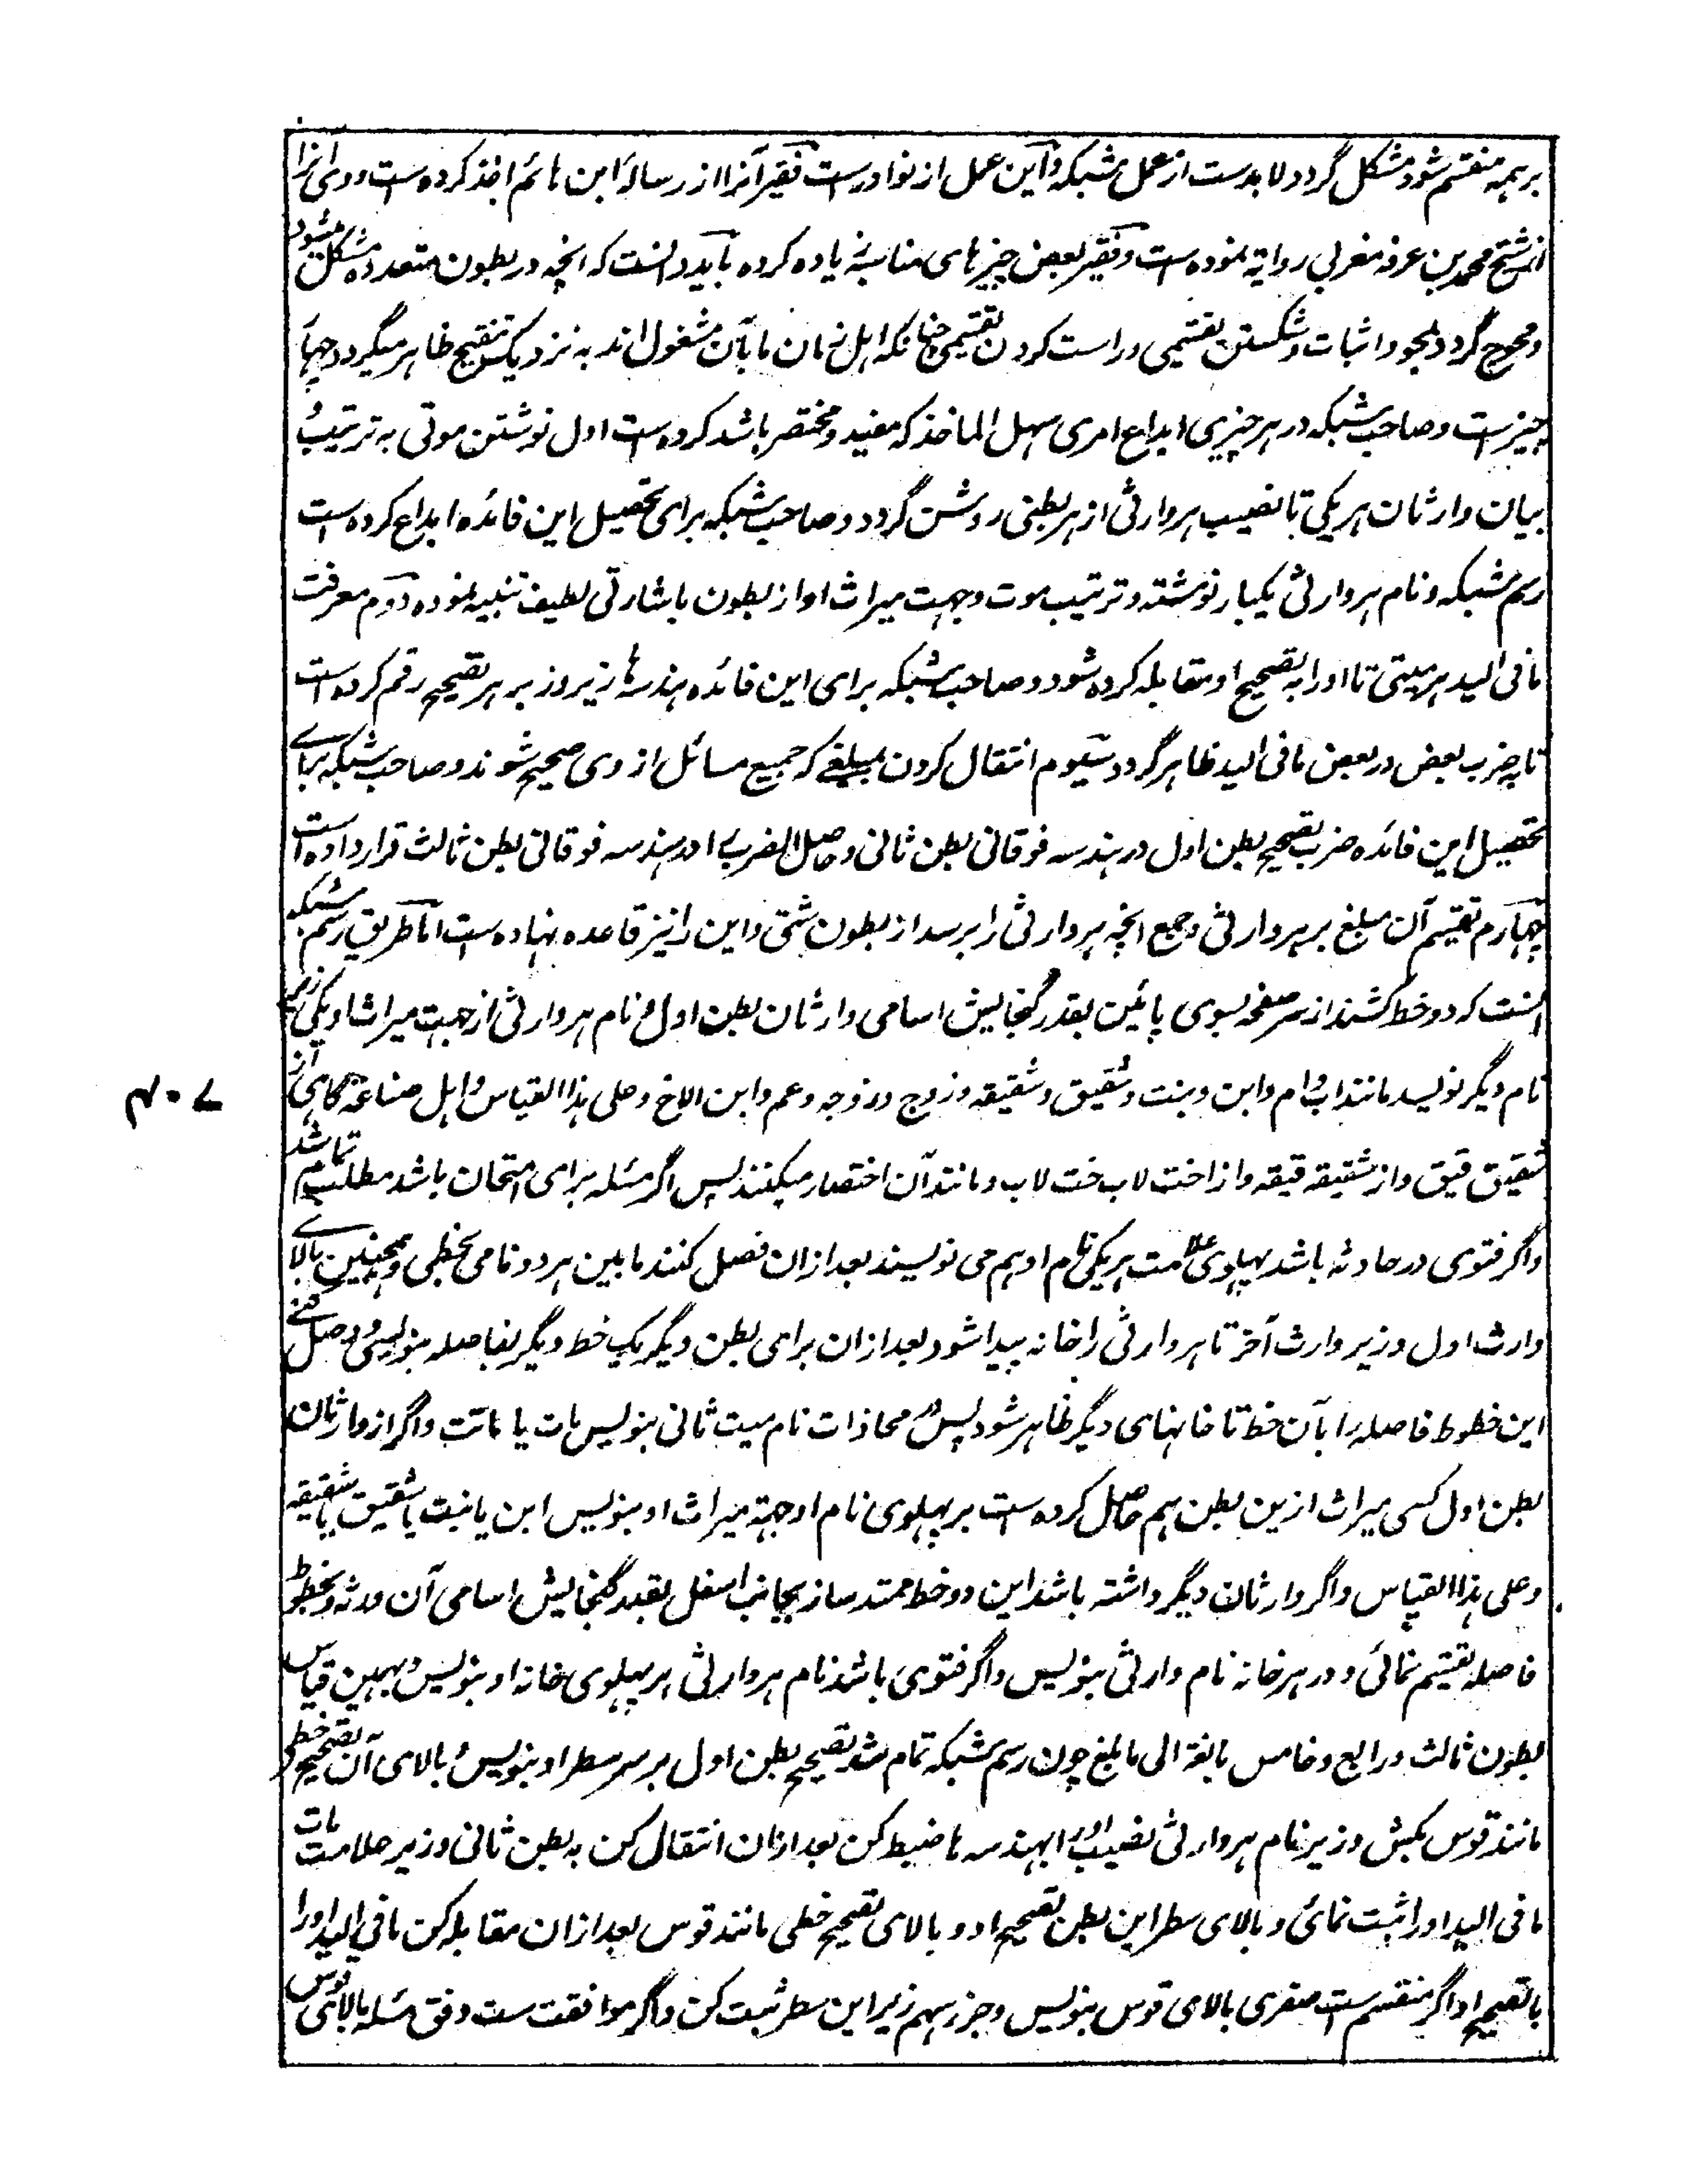 بر همه منقسم شود مشکل گردد لابدست از عمل شبکه و این عمل از نوادرست فقیر آنرا از رسالهٔ ابن هائم اخذ کرده است و وی آنرا
از شیخ محمد بن عرفه مغربی روایة نموده است و فقیر بعض چیزهای مناسبه زیاده کرده باید دانست که آنچه در بطون متعدده مشکل میشود
و محوج گردد بمحو و اثبات و شکستن تقسیمی و راست کردن تقسیمی چنانکه اهل زمان ما بآن مشغول اند به نزدیک تنقیح ظاهر میگردد چهار
چیزست و صاحب شبکه در هر چیزی ابداع امری سهل الماخذ که مفید و مختصر باشد کرده است اول نوشتن موتی به ترتیب و
بیان وارثان هر یکی تا نصیب هر وارثی از هر بطنی روشن گردد و صاحب شبکه برای تحصیل این فائده ابداع کرده است
رسم شبکه و نام هر وارثی یکبار نوشته و ترتیب موت و جهت میراث او از بطون باشارتی لطیف تنبیه نموده دوم معرفت
مافی الید هر میتی تا او را به تصحیح او مقابله کرده شود و صاحب شبکه برای این فائده هندسها زیر و زبر هر تصحیح رقم کرده است
تا بضرب بعض در بعض مافی الید ظاهر گردد سیوم انتقال کردن بمبلغی که جمیع مسائل از وی صحیح شوند و صاحب شبکه برای
تحصیل این فائده ضرب تصحیح بطن اول در هندسه فوقانی بطن ثانی و حاصل الضرب را در هندسه فوقانی بطن ثالث قرار داده است
چهارم تقسیم آن مبلغ بر هر وارثی و جمع آنچه هر وارثی را برسد از بطون شتی و این را نیز قاعده نهاده است اما طریق رسم شبکه
آنست که دو خط کشند از سر صفحه بسوی پائین بقدر گنجایش اسامی وارثان بطن اول و نام هر وارثی از جهت میراث او یکی زیر
نام دیگر نویسد مانند اب و ام و ابن و بنت و شقیق و شقیقه و زوج و زوجه و عم و ابن الاخ و علی هذا القیاس و اهل صناعة گاهی از
شقیق قیق و از شقیقه قیقه و از اخت لاب خت لاب و مانند آن اختصار میکنند پس اگر مسئله برای امتحان باشد مطلب تمام شد
و اگر فتوی در حادثه باشد بپهلوی علامت هر یکی نام او هم می نویسند بعد ازان فصل کنند مابین هر دو نامی بخطی و همچنین بالای
وارث اول و زیر وارث آخر تا هر وارثی را خانه پیدا شود بعد ازان برای بطن دیگر یک خط دیگر بفاصله بنویسی و وصل کنی
این خطوط فاصله را بآن خط تا خانهای دیگر ظاهر شود پس در محاذات نام میت ثانی بنویس مات یا ماتت و اگر از وارثان
بطن اول کسی میراث ازین بطن هم حاصل کرده است بر پهلوی نام او جهة میراث او بنویس ابن یا بنت یا شقیق یا شقیقه
و علی هذا القیاس و اگر وارثان دیگر داشته باشد این دو خط ممتد ساز بجانب اسفل بقدر گنجایش اسامی آن ورثه و بخطوط
فاصله تقسیم نمائی و در هر خانه نام وارثی بنویس و اگر فتوی باشد نام هر وارثی بر پهلوی خانه او بنویس و بهمین قیاس
بطون ثالث و رابع و خامس بالغة الی ما بلغ چون رسم شبکه تمام شد تصحیح بطن اول بر سر سطر او بنویس و بالای آن تصحیح خطی
مانند قوس بکش و زیر نام هر وارثی نصیب او را بهندسه ها ضبط کن بعد ازان انتقال کن به بطن ثانی و زیر علامت مات
مافی الید او را ثبت نمائی و بالای سطر این بطن تصحیح او و بالای تصحیح خطی مانند قوس بعد ازان مقابله کن مافی الید او را
با تصحیح او اگر منقسم ست صفری بالای قوس بنویس و جزر سهم زیر این سطر ثبت کن و اگر موافقت ست وفق مسئله بالای قوس
۴۰۷